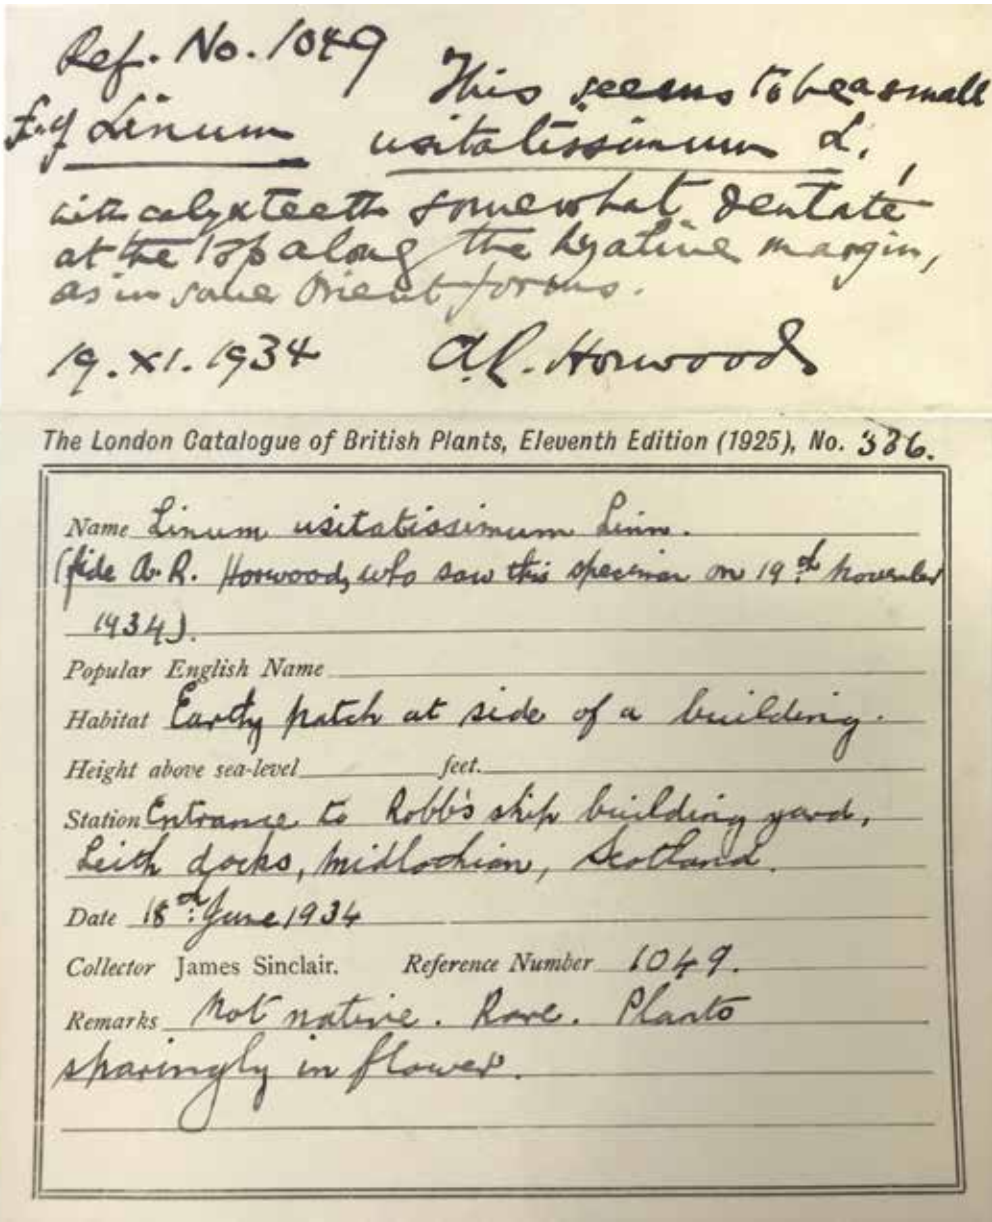 Ref. No. 1049
This seems to be a small
f. of Linum usitatissimum L.,
with calyx teeth somewhat dentate
at the top along the hyaline margin,
as in some Orient forms.
19.XI.1934 A.R. Horwood
The London Catalogue of British Plants, Eleventh Edition (1925), No. 386.
Name Linum usitatissimum Linn.
(fide A.R. Horwood, who saw this specimen on 19th November
1934).
Popular English Name
Habitat Earthy patch at side of a building.
Height above sea-level feet.
Station Entrance to Robb's ship building yard,
Leith docks, Midlothian, Scotland.
Date 18th June 1934
Collector James Sinclair. Reference Number 1049.
Remarks Not native. Rare. Plants
sparingly in flower.